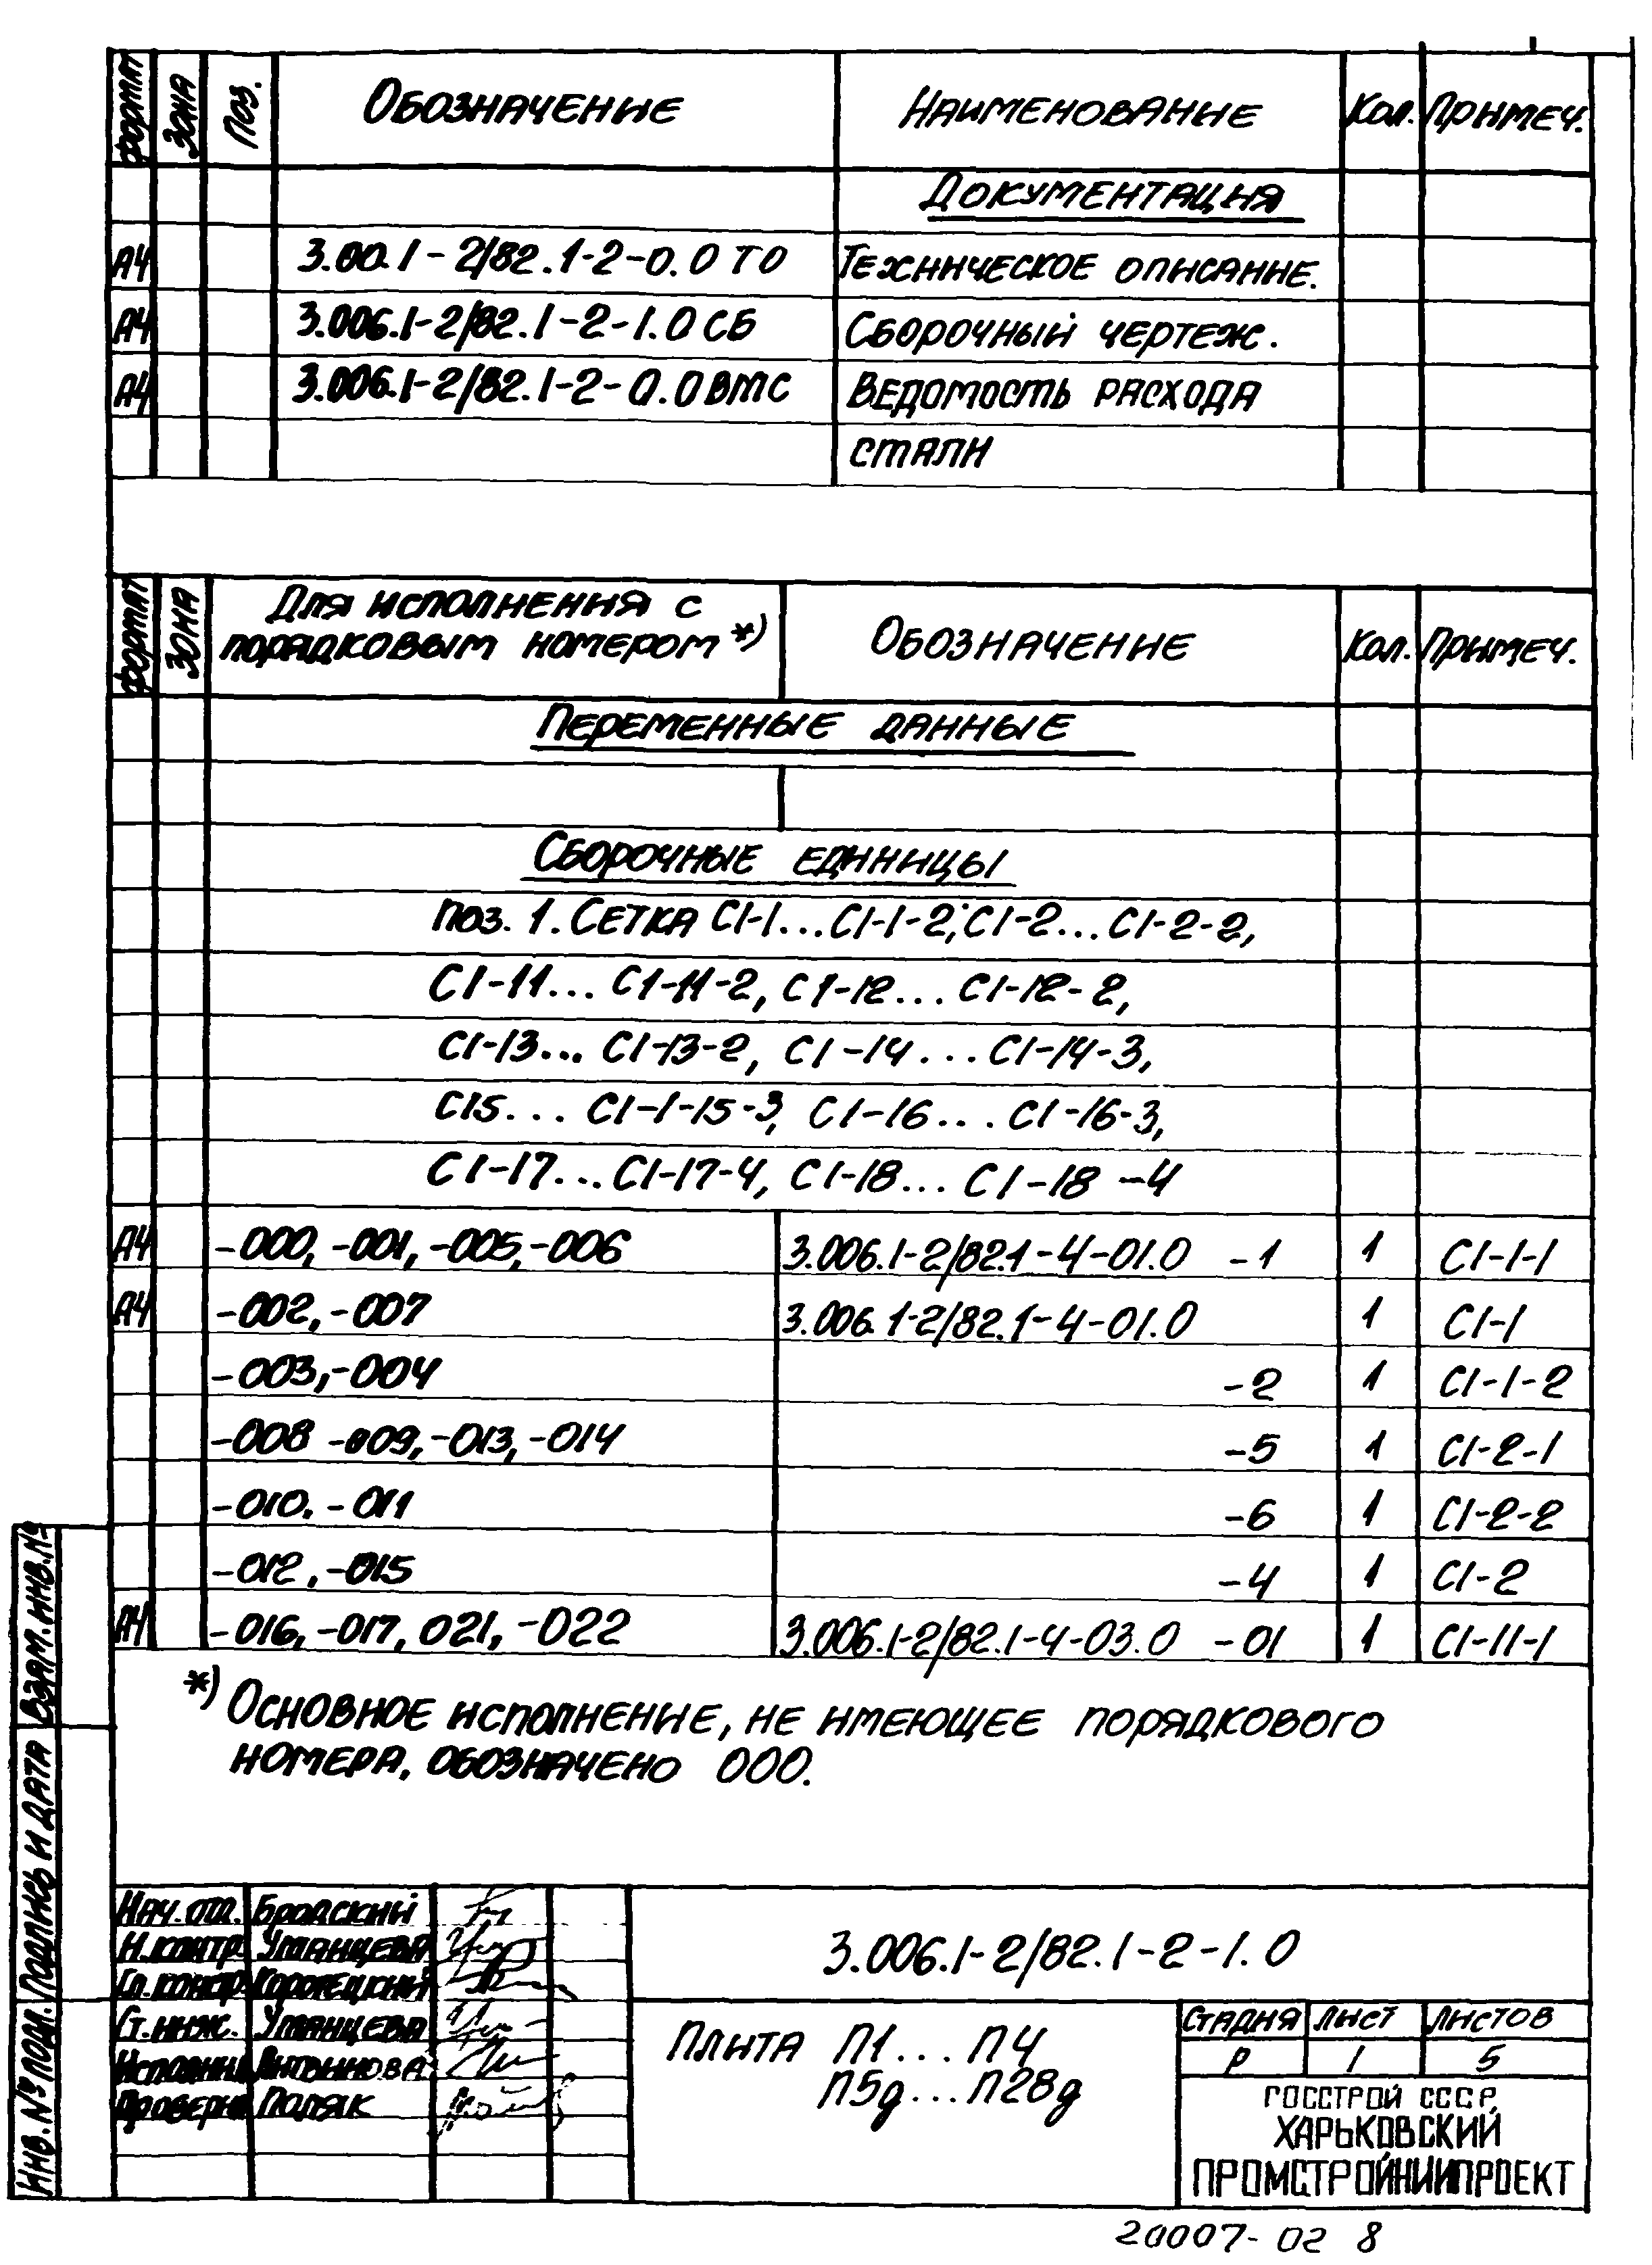 Формат Зона Поз. Обозначение Наименование Кол. Примеч.
Документация
А4 3.00.1-2/82.1-2-0.0 ТО Техническое описание.
А4 3.006.1-2/82.1-2-1.0 СБ Сборочный чертеж.
А4 3.006.1-2/82.1-2-0.0 ВМС Ведомость расхода
стали
Формат Зона Для исполнения с
порядковым номером *) Обозначение Кол. Примеч.
Переменные данные
Сборочные единицы
поз. 1. Сетка С1-1...С1-1-2; С1-2...С1-2-2,
С1-11... С1-11-2, С1-12... С1-12-2,
С1-13... С1-13-2, С1-14... С1-14-3,
С15... С1-1-15-3, С1-16... С1-16-3,
С1-17...С1-17-4, С1-18... С1-18-4
А4 -000, -001, -005, -006 3.006.1-2/82.1-4-01.0 -1 1 С1-1-1
А4 -002, -007 3.006.1-2/82.1-4-01.0 1 С1-1
-003, -004 -2 1 С1-1-2
-008 -009, -013, -014 -5 1 С1-2-1
-010. -011 -6 1 С1-2-2
-012, -015 -4 1 С1-2
А4 -016, -017, 021, -022 3.006.1-2/82.1-4-03.0 -01 1 С1-11-1
*) Основное исполнение, не имеющее порядкового
номера, обозначено 000.
Инв. № подл. Подпись и дата Взам. инв. №
Нач. отд. Бродский
Н. контр. Уманцева
Гл. констр. Коротецкий
Ст. инж. Уманцева
Исполнил Антонова
Проверил Поляк
3.006.1-2/82.1-2-1.0
Плита П1...П4
П5д...П28д
Стадия Лист Листов
Р 1 5
Госстрой СССР,
Харьковский
ПромстройНИИпроект
20007-02 8